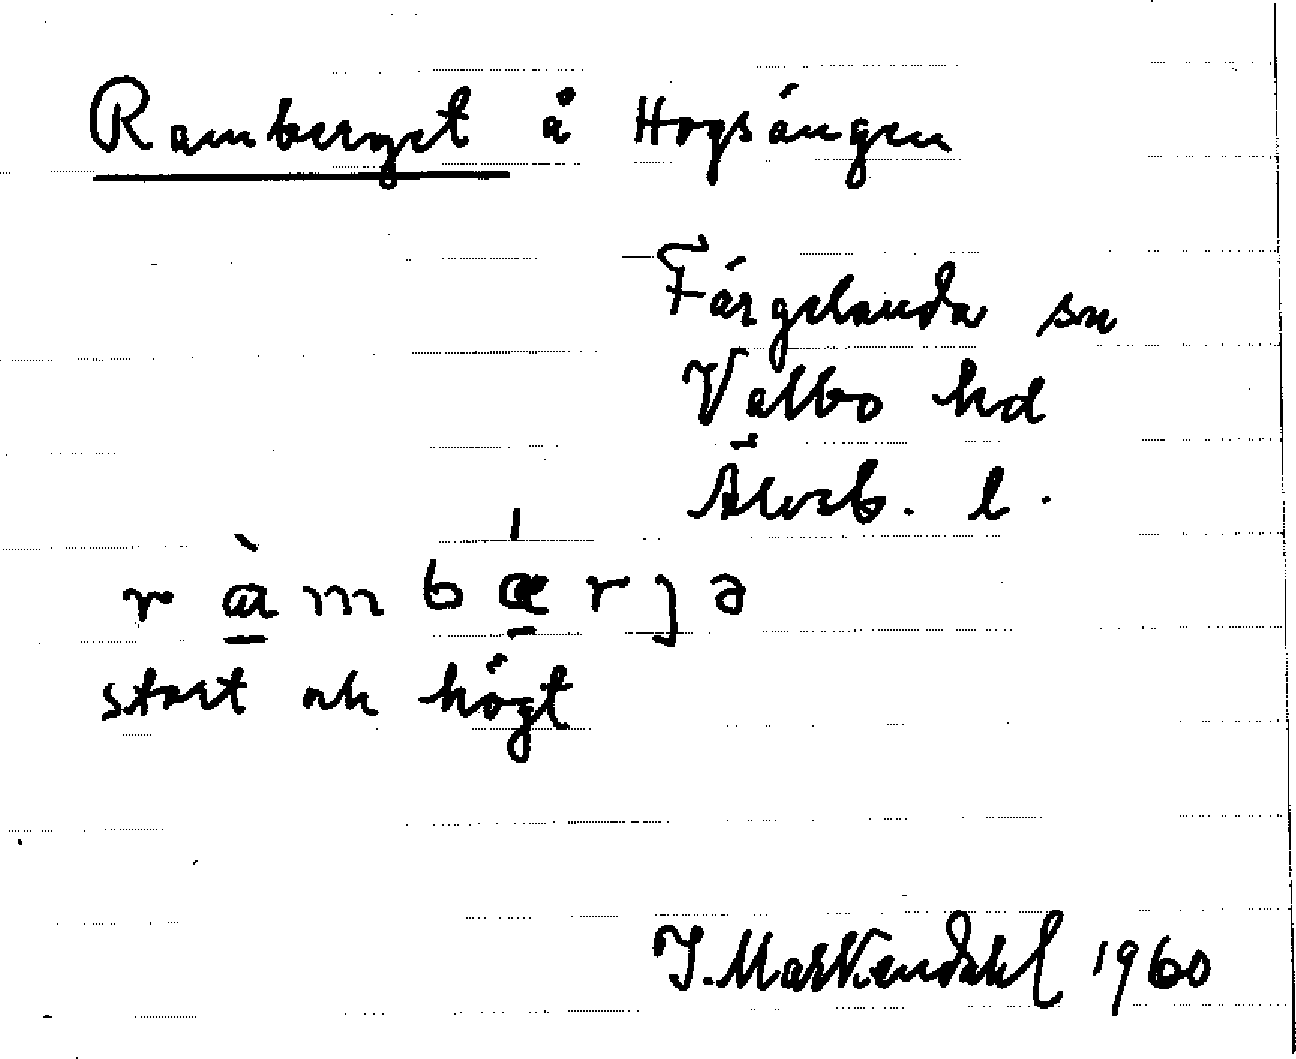 Ramberget å Hogsängen
Färgelanda sn
Valbo hd
Älvsb. l.
r à m b æ r j ə
stort och högt
J. Markendahl 1960